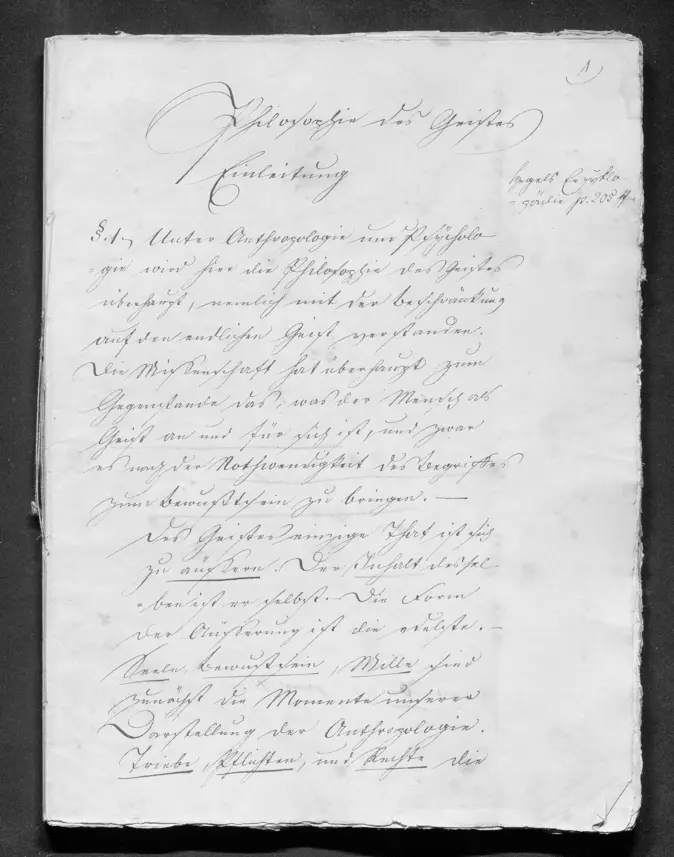 1)
Philosophie des Geistes
Einleitung
Hegels Enzyklo
-pädie p. 205 ff.
§. 1. Unter Anthropologie und Psÿcholo
-gie wird hier die Philosophie des Geistes
überhaupt, nemlich mit der Beschränkung
auf den endlichen Geist verstanden.
Die Wissenschaft hat überhaupt zum
Gegenstande das, was der Mensch als
Geist an und für sich ist, und zwar
es nach der Nothwendigkeit des Begriffes
zum Bewußtsein zu bringen. —
Des Geistes einzige That ist sich
zu äussern. Der Inhalt dessel
-ben ist er selbst. — Die Form
der Äusserung ist die edelste. —
Seele, Bewustsein, Wille sind
zunächst die Momente unserer
Darstellung der Anthropologie.
Triebe, Pflichten, und Rechte die